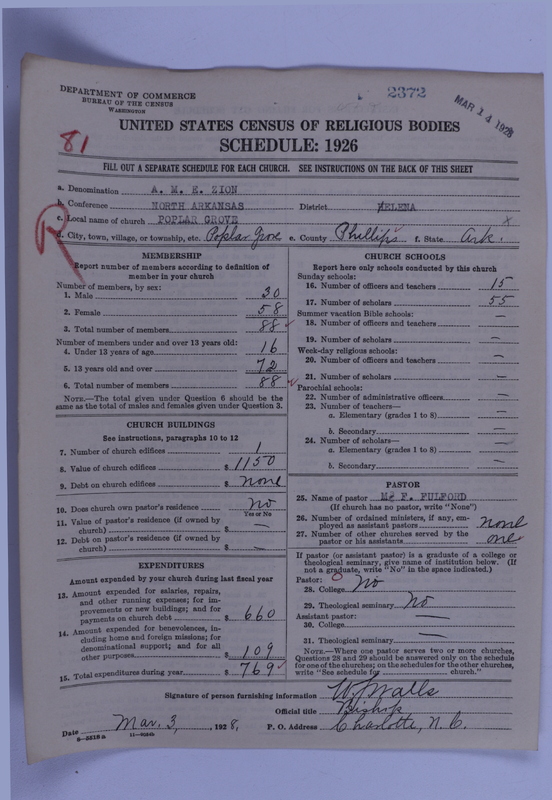 DEPARTMENT OF COMMERCE
BUREAU OF THE CENSUS
WASHINGTON
2372
MAR 14 1928
81
UNITED STATES CENSUS OF RELIGIOUS BODIES
SCHEDULE: 1926
FILL OUT A SEPARATE SCHEDULE FOR EACH CHURCH. SEE INSTRUCTIONS ON THE BACK OF THIS SHEET
a. Denomination A. M. E. ZION
b. Conference NORTH ARKANSAS District HELENA
c. Local name of church POPLAR GROVE x
R
d. City, town, village, or township, etc. Poplar Grove e. County Phillips f. State Ark.
MEMBERSHIP
Report number of members according to definition of
member in your church
Number of members, by sex:
1. Male 30
2. Female 58
3. Total number of members. 88 ✓
Number of members under and over 13 years old:
4. Under 13 years of age 16
5. 13 years old and over 72
6. Total number of members 88 ✓
NOTE.—The total given under Question 6 should be
same as the total of males and females given under Question 3.
CHURCH BUILDINGS
See instructions, paragraphs 10 to 12
7. Number of church edifices 1
8. Value of church edifices $ 1150
9. Debt on church edifices $ none
10. Does church own pastor's residence? no
Yes or No
11. Value of pastor's residence (if owned by
church) $ —
12. Debt on pastor's residence (if owned by
church) $ —
EXPENDITURES
Amount expended by your church during last fiscal year
13. Amount expended for salaries, repairs,
and other running expenses; for im-
provements or new buildings; and for
payments on church debt $ 660
14. Amount expended for benevolences, in-
cluding home and foreign missions; for
denominational support; and for all
other purposes. $ 109
15. Total expenditures during year $ 769 ✓
CHURCH SCHOOLS
Report here only schools conducted by this church
Sunday schools:
16. Number of officers and teachers 15
17. Number of scholars 55
Summer vacation Bible schools:
18. Number of officers and teachers —
19. Number of scholars —
Week-day religious schools:
20. Number of officers and teachers —
21. Number of scholars —
Parochial schools:
22. Number of administrative officers —
23. Number of teachers—
a. Elementary (grades 1 to 8) —
b. Secondary —
24. Number of scholars—
a. Elementary (grades 1 to 8) —
b. Secondary —
PASTOR
25. Name of pastor F. FULFORD
(If church has no pastor, write "None")
26. Number of ordained ministers, if any, em-
ployed as assistant pastors none
27. Number of other churches served by the
pastor or his assistants one
If pastor (or assistant pastor) is a graduate of a college or
theological seminary, give name of institution below. (If
not a graduate, write "No" in the space indicated.)
Pastor:
28. College No
29. Theological seminary No
Assistant pastor:
30. College —
31. Theological seminary —
NOTE.—Where one pastor serves two or more churches,
Questions 28 and 29 should be answered only on the schedule
for one of the churches; on the schedules for the other churches,
write "See schedule for church."
Signature of person furnishing information W. J. Walls
Official title Bishop
Date Mar. 3, 1928, P. O. Address Charlotte, N. C.